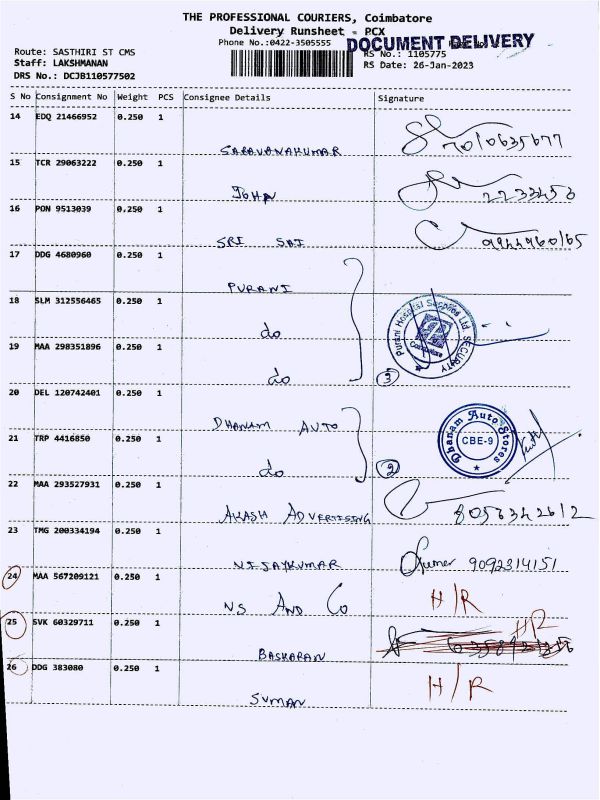 THE PROFESSIONAL COURIERS, Coimbatore
Delivery Runsheet - PCX
Phone No.:0422-3505555
DOCUMENT DELIVERY
Route: SASTHIRI ST CMS
RS No.: 1105775
Staff: LAKSHMANAN
RS Date: 26-Jan-2023
DRS No.: DCJB110577502
S No Consignment No Weight PCS Consignee Details Signature
14 EDQ 21466952 0.250 1
SARAVANAKUMAR
15 TCR 29063222 0.250 1
JOHN
16 PON 9513039 0.250 1
SRI SAI
17 DDG 4680960 0.250 1
PURANI
18 SLM 312556465 0.250 1
do
Purani Hospital Supplies Ltd. SECURITY
Coimbatore
19 MAA 298351896 0.250 1
do 3
20 DEL 120742401 0.250 1
DHANAM AUTO
Dhanam Auto Stores
CBE-9
21 TRP 4416850 0.250 1
do 2
22 MAA 293527931 0.250 1
AKASH ADVERTISING 8056342612
23 TMG 200334194 0.250 1
VIJAYKUMAR 9092314151
24 MAA 567209121 0.250 1
NS AND Co H/R
25 SVK 60329711 0.250 1
HR
BASKARAN
26 DDG 383080 0.250 1
H/R
SUMAN